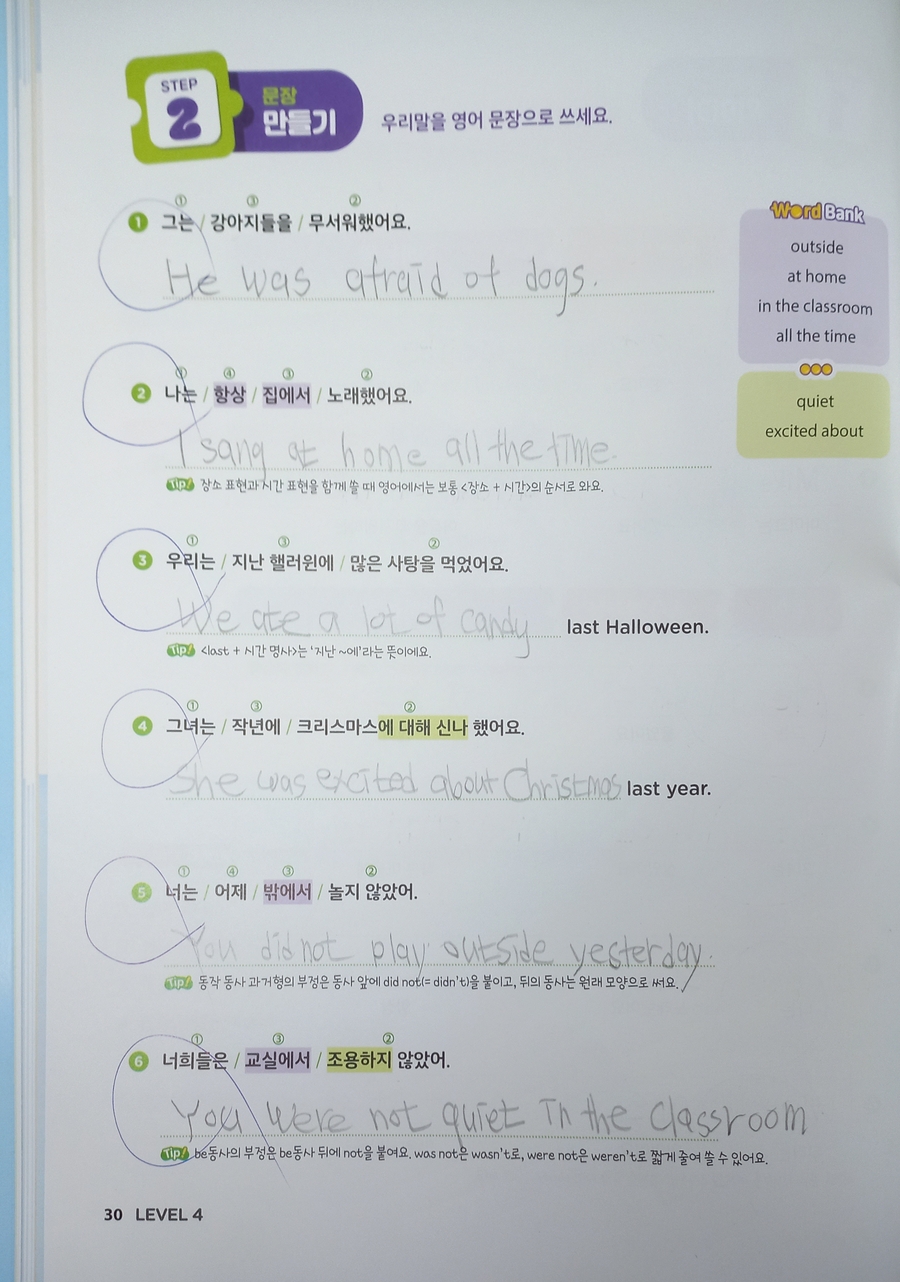 STEP
2
문장
만들기
우리말을 영어 문장으로 쓰세요.
① ③ ②
1 그는 / 강아지들을 / 무서워했어요.
He was afraid of dogs.
① ④ ③ ②
2 나는 / 항상 / 집에서 / 노래했어요.
I sang at home all the time.
Tip! 장소 표현과 시간 표현을 함께 쓸 때 영어에서는 보통 <장소 + 시간>의 순서로 와요.
① ③ ②
3 우리는 / 지난 핼러윈에 / 많은 사탕을 먹었어요.
We ate a lot of candy last Halloween.
Tip! <last + 시간 명사>는 '지난 ~에'라는 뜻이에요.
① ③ ②
4 그녀는 / 작년에 / 크리스마스에 대해 신나 했어요.
She was excited about Christmas last year.
① ④ ③ ②
5 너는 / 어제 / 밖에서 / 놀지 않았어.
You did not play outside yesterday.
Tip! 동작 동사 과거형의 부정은 동사 앞에 did not(= didn't)을 붙이고, 뒤의 동사는 원래 모양으로 써요.
① ③ ②
6 너희들은 / 교실에서 / 조용하지 않았어.
You were not quiet in the classroom
Tip! be동사의 부정은 be동사 뒤에 not을 붙여요. was not은 wasn't로, were not은 weren't로 짧게 줄여 쓸 수 있어요.
Word Bank
outside
at home
in the classroom
all the time
quiet
excited about
30 LEVEL 4